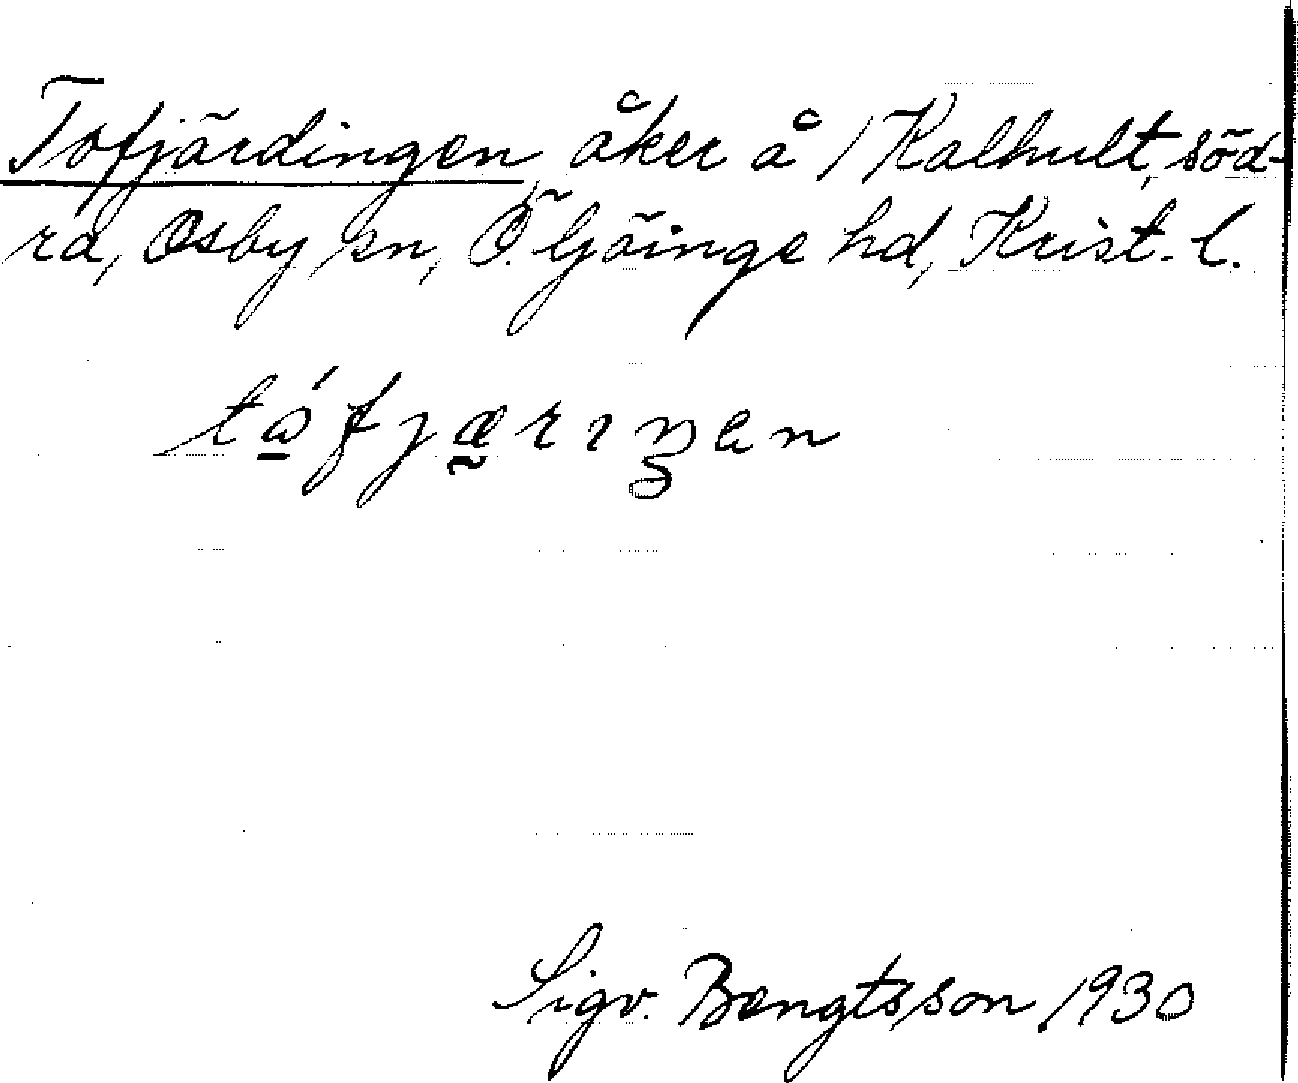 Tofjärdingen, åker å /1 Kalhult, söd-
ra, Osby sn, Ö. Göinge hd, Krist. l.
Sigv. Bengtsson 1930